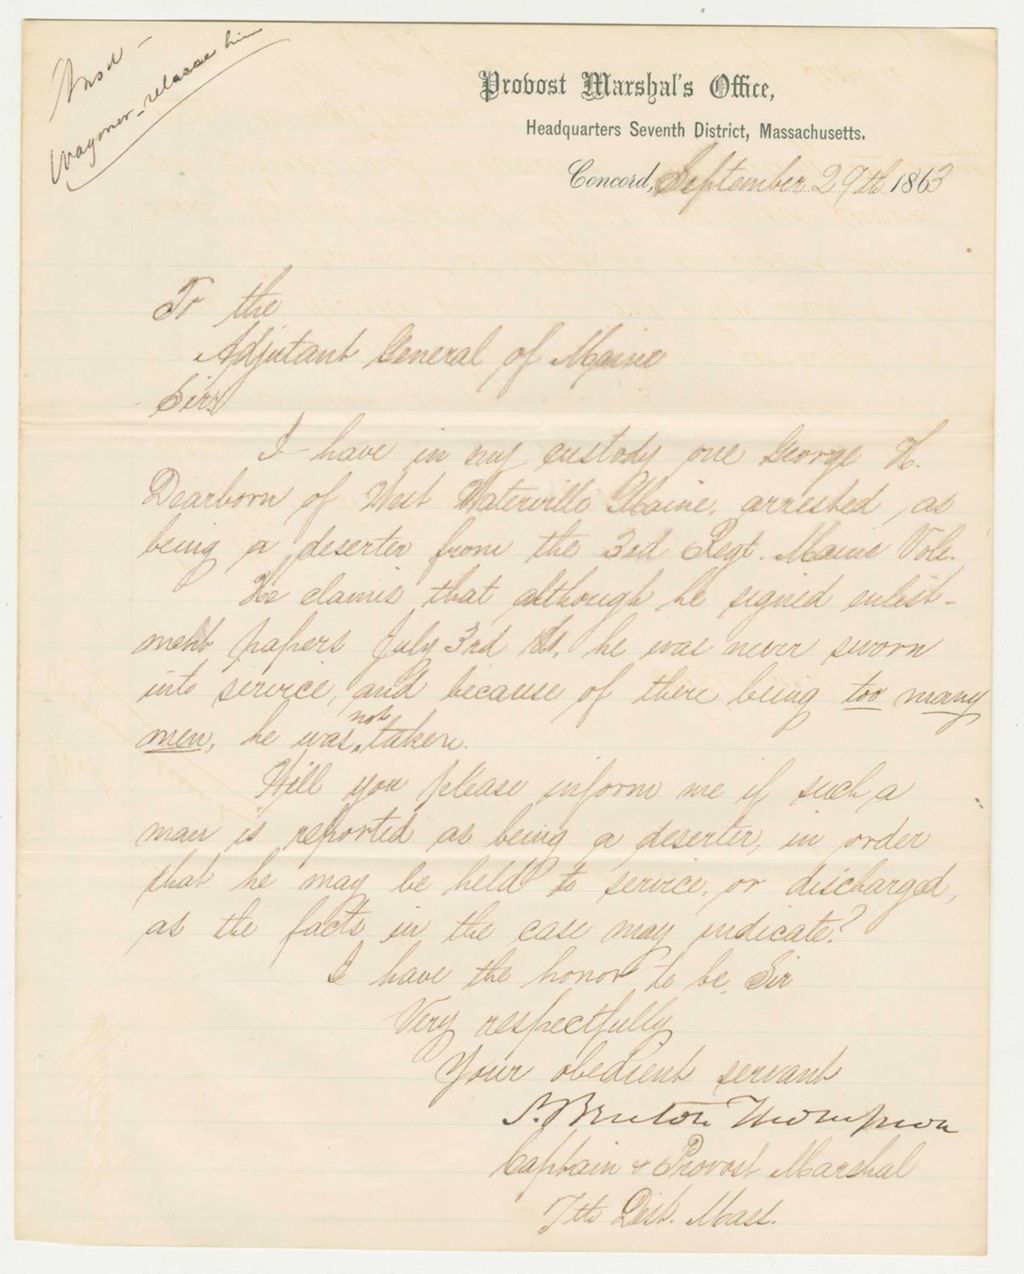 Ansd -
release him
Provost Marshal's Office,
Headquarters Seventh District, Massachusetts.
Concord, September 29th 1863
To the
Adjutant General of Maine
Sir,
I have in my custody one George H.
Dearborn of West Waterville Maine, arrested, as
being a deserter from the 3rd Regt. Maine Vols.
He claims that although he signed enlist-
ment papers July 3rd he was never sworn
into service, and because of there being too many
men, he was not taken.
Will you please inform me if such a
man is reported as being a deserter, in order
that he may be held to service, or discharged,
as the facts in the case may indicate?
I have the honor to be, Sir
Very respectfully
Your obedient servant
Thompson
Captain & Provost Marshal
7th Dist. Mass.